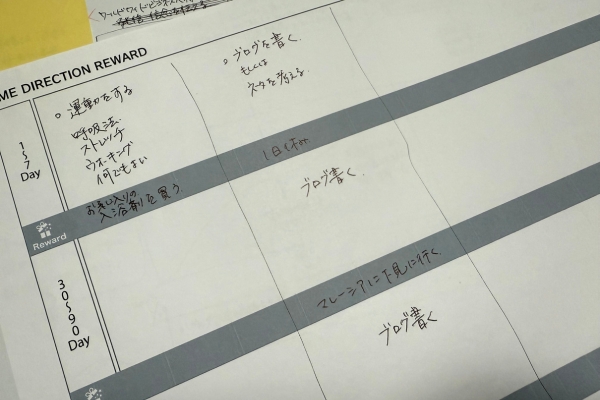 ME DIRECTION REWARD
1~7
Day
○ 運動をする
呼吸法
ストレッチ
ウオーキング
何でもよい
○ ブログを書く
もしくは
ネタを考える
Reward
お気に入りの
入浴剤を買う
1日休み
ブログ書く
30~90
Day
マレーシアに下見に行く
ブログ書く